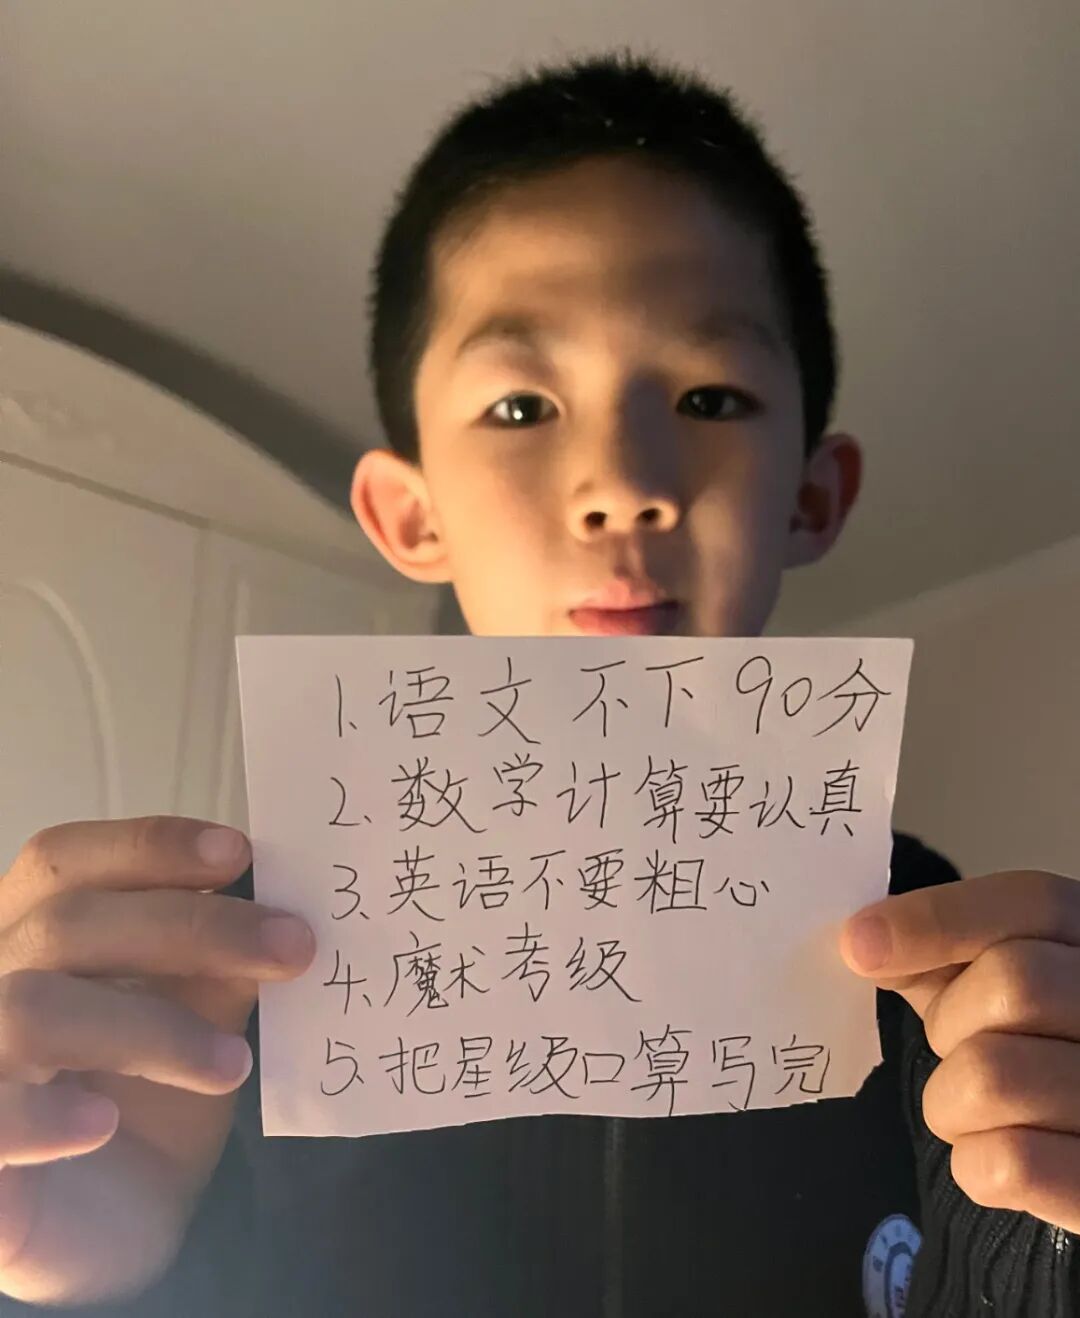 1.语文不下90分
2.数学计算要认真
3.英语不要粗心
4.魔术考级
5.把星级口算写完